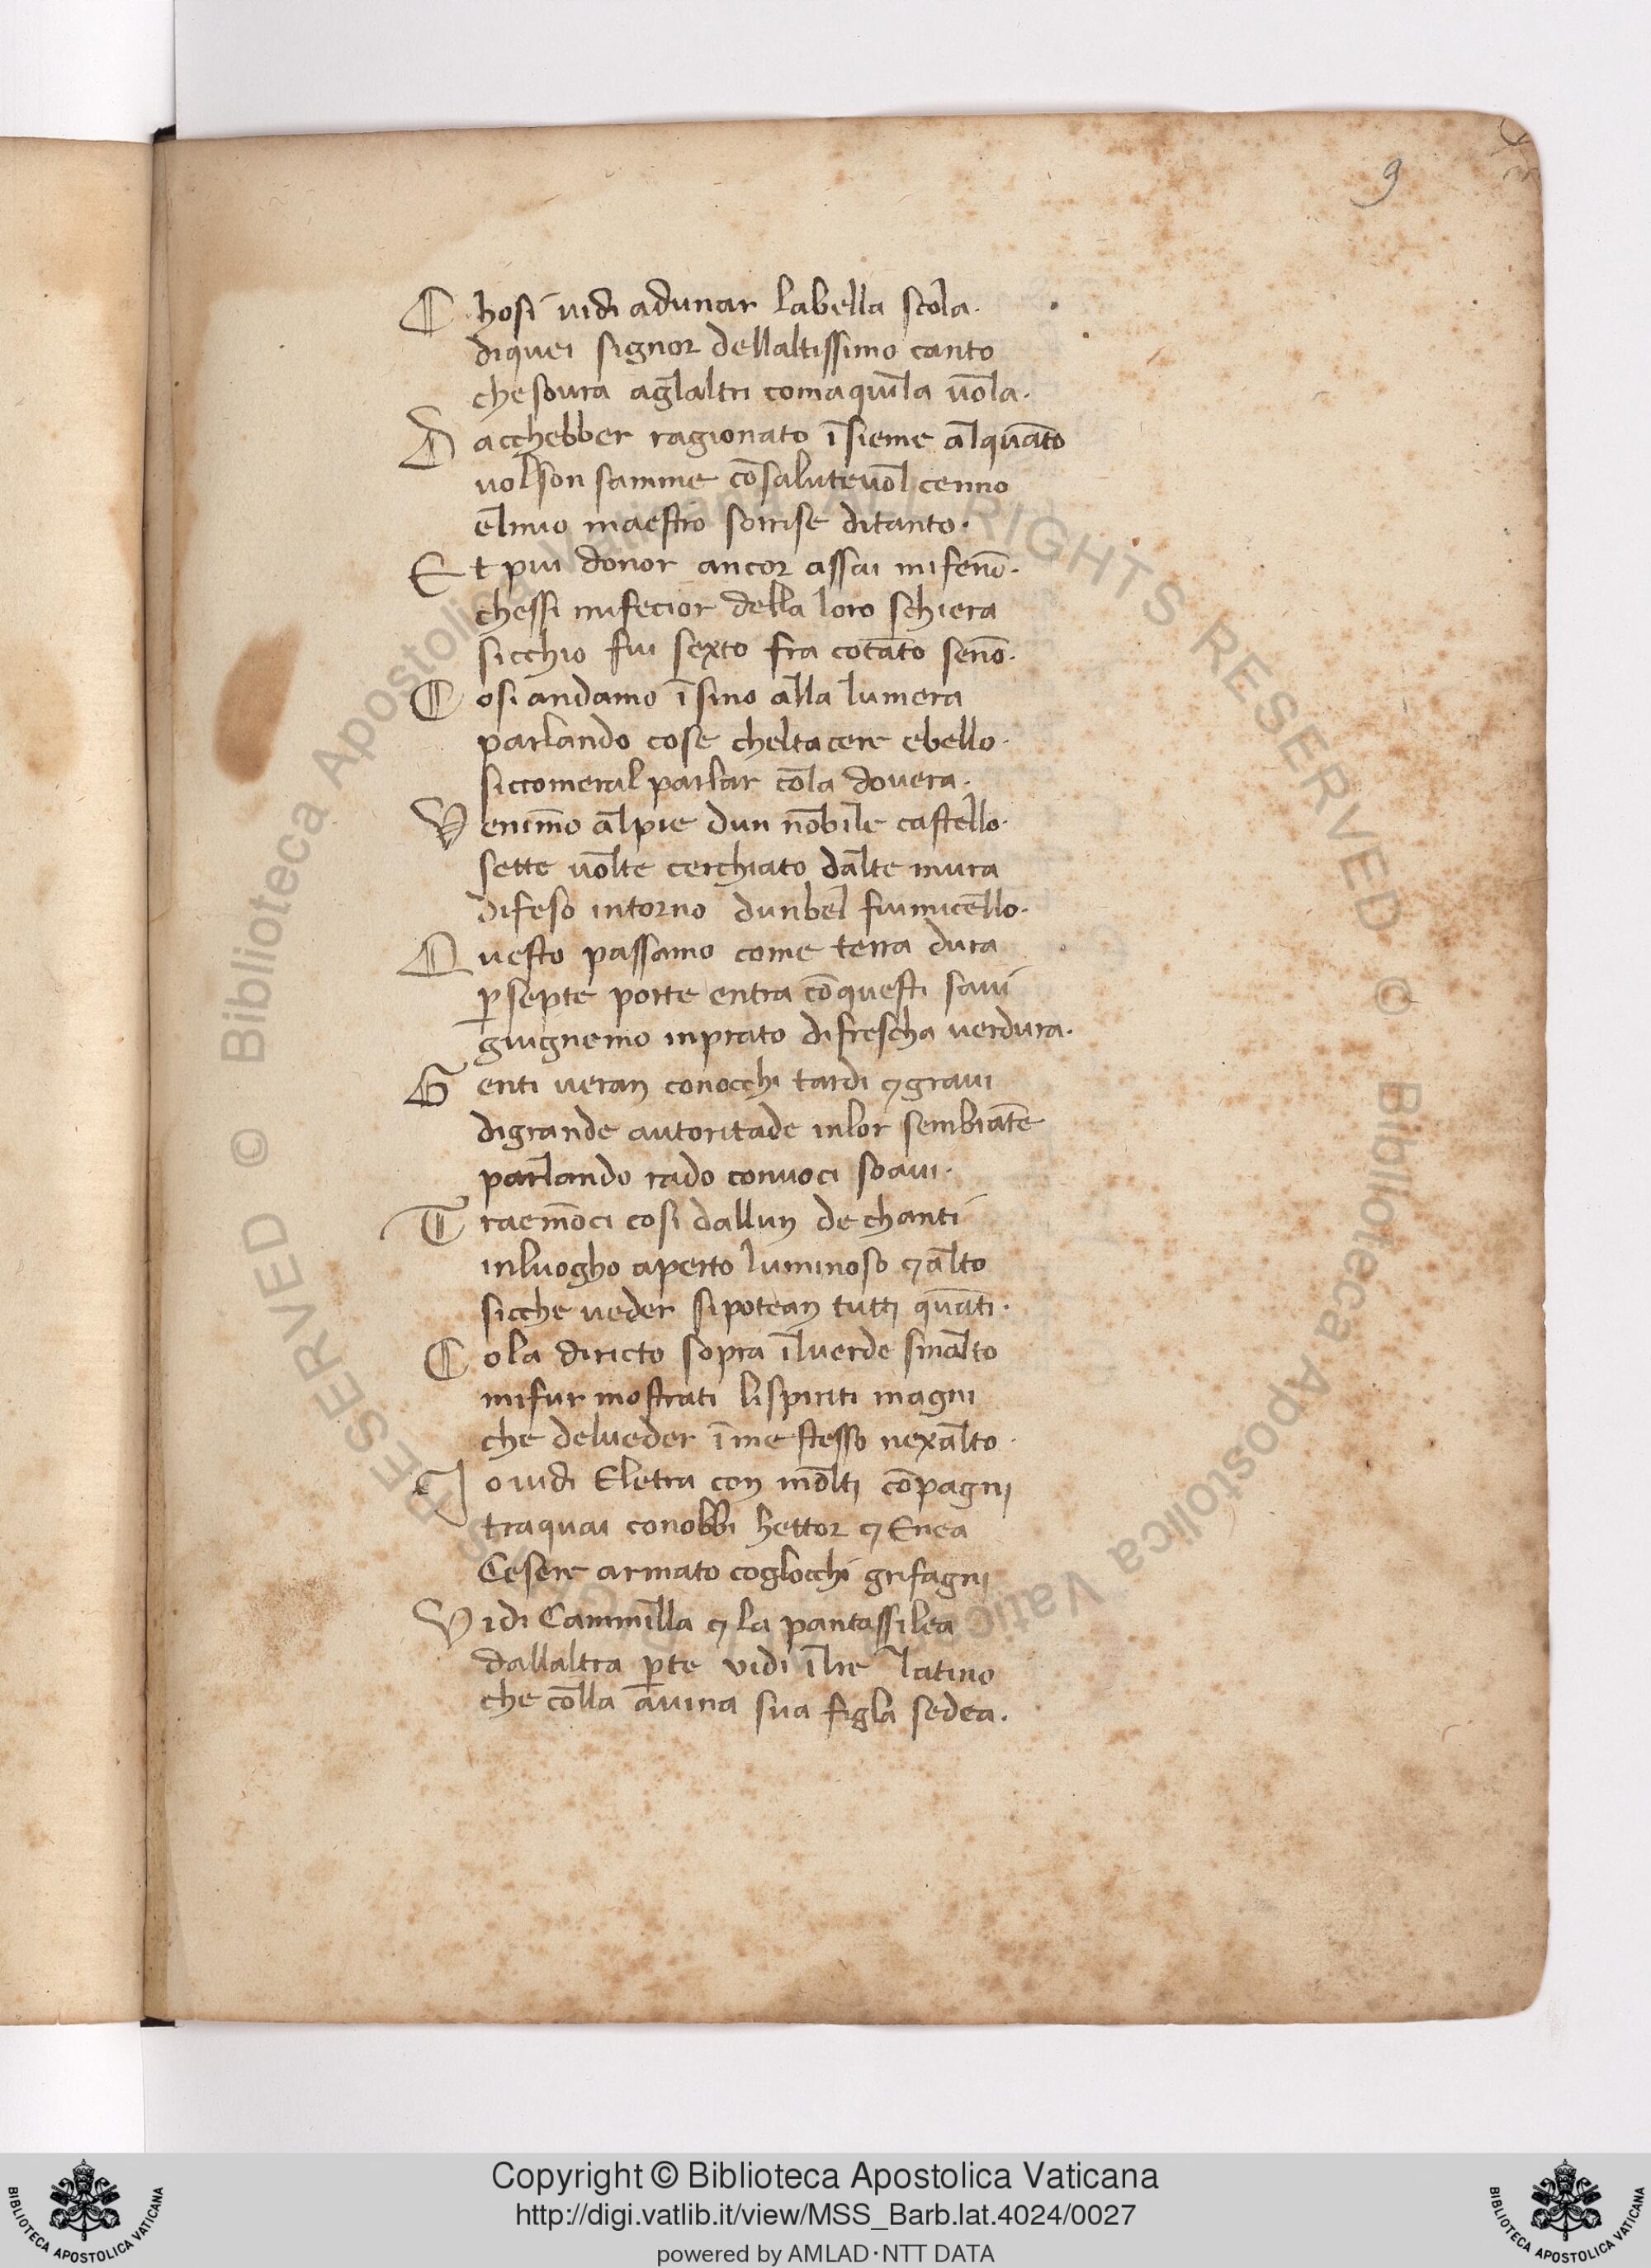 9
Chosi uidi adunar labella scola.
diquei signor dellaltissimo canto
chesoura aglaltri comaquila uola.
Dacchebber ragionato īsieme alquāto
uolson samme cōsaluteuol cenno
elmio maestro sorrise ditanto.
Et piu donor ancor assai mifenō.
chessi mifecior della loro schiera
sicchio fui sexto fra cotāto senō.
Cosi andamo īsino alla lumera
parlando cose cheltacere ebello.
siccomeral parlar cola douera.
Venimō alpie dun nobile castello.
sette uolte cerchiato dalte mura
difeso intorno dunbel fiumicello.
Questo passamo come terra dura
p̱septe porte entra cōquesti saui
giugnemo inprato difrescha uerdura.
Genti ueran conocchi tardi ⁊graui
digrande autoritade inlor sembiāte
parlando rado conuoci soaui.
Traemōci cosi dallun de chanti
inluogho aperto luminoso ⁊alto
sicche ueder sipotean tutti quāti.
Cola diricto sopra iluerde smalto
mifur mostrati lispiriti magni
che delueder īme stesso nexalto.
Io uidi Eletra con molti cōpagni
traquai conobbi hettor ⁊ Enea
Cesere armato coglocchi grifagni
Vidi Cammilla ⁊ la pantassilea
dallaltra p̱te vidi ilre latino
che colla auina sua figla sedea.
© Biblioteca Apostolica Vaticana ALL RIGHTS RESERVED © Biblioteca Apostolica Vaticana ALL RIGHTS RESERVED
Copyright © Biblioteca Apostolica Vaticana
http://digi.vatlib.it/view/MSS_Barb.lat.4024/0027
powered by AMLAD·NTT DATA
BIBLIOTECA APOSTOLICA VATICANA
BIBLIOTECA APOSTOLICA VATICANA